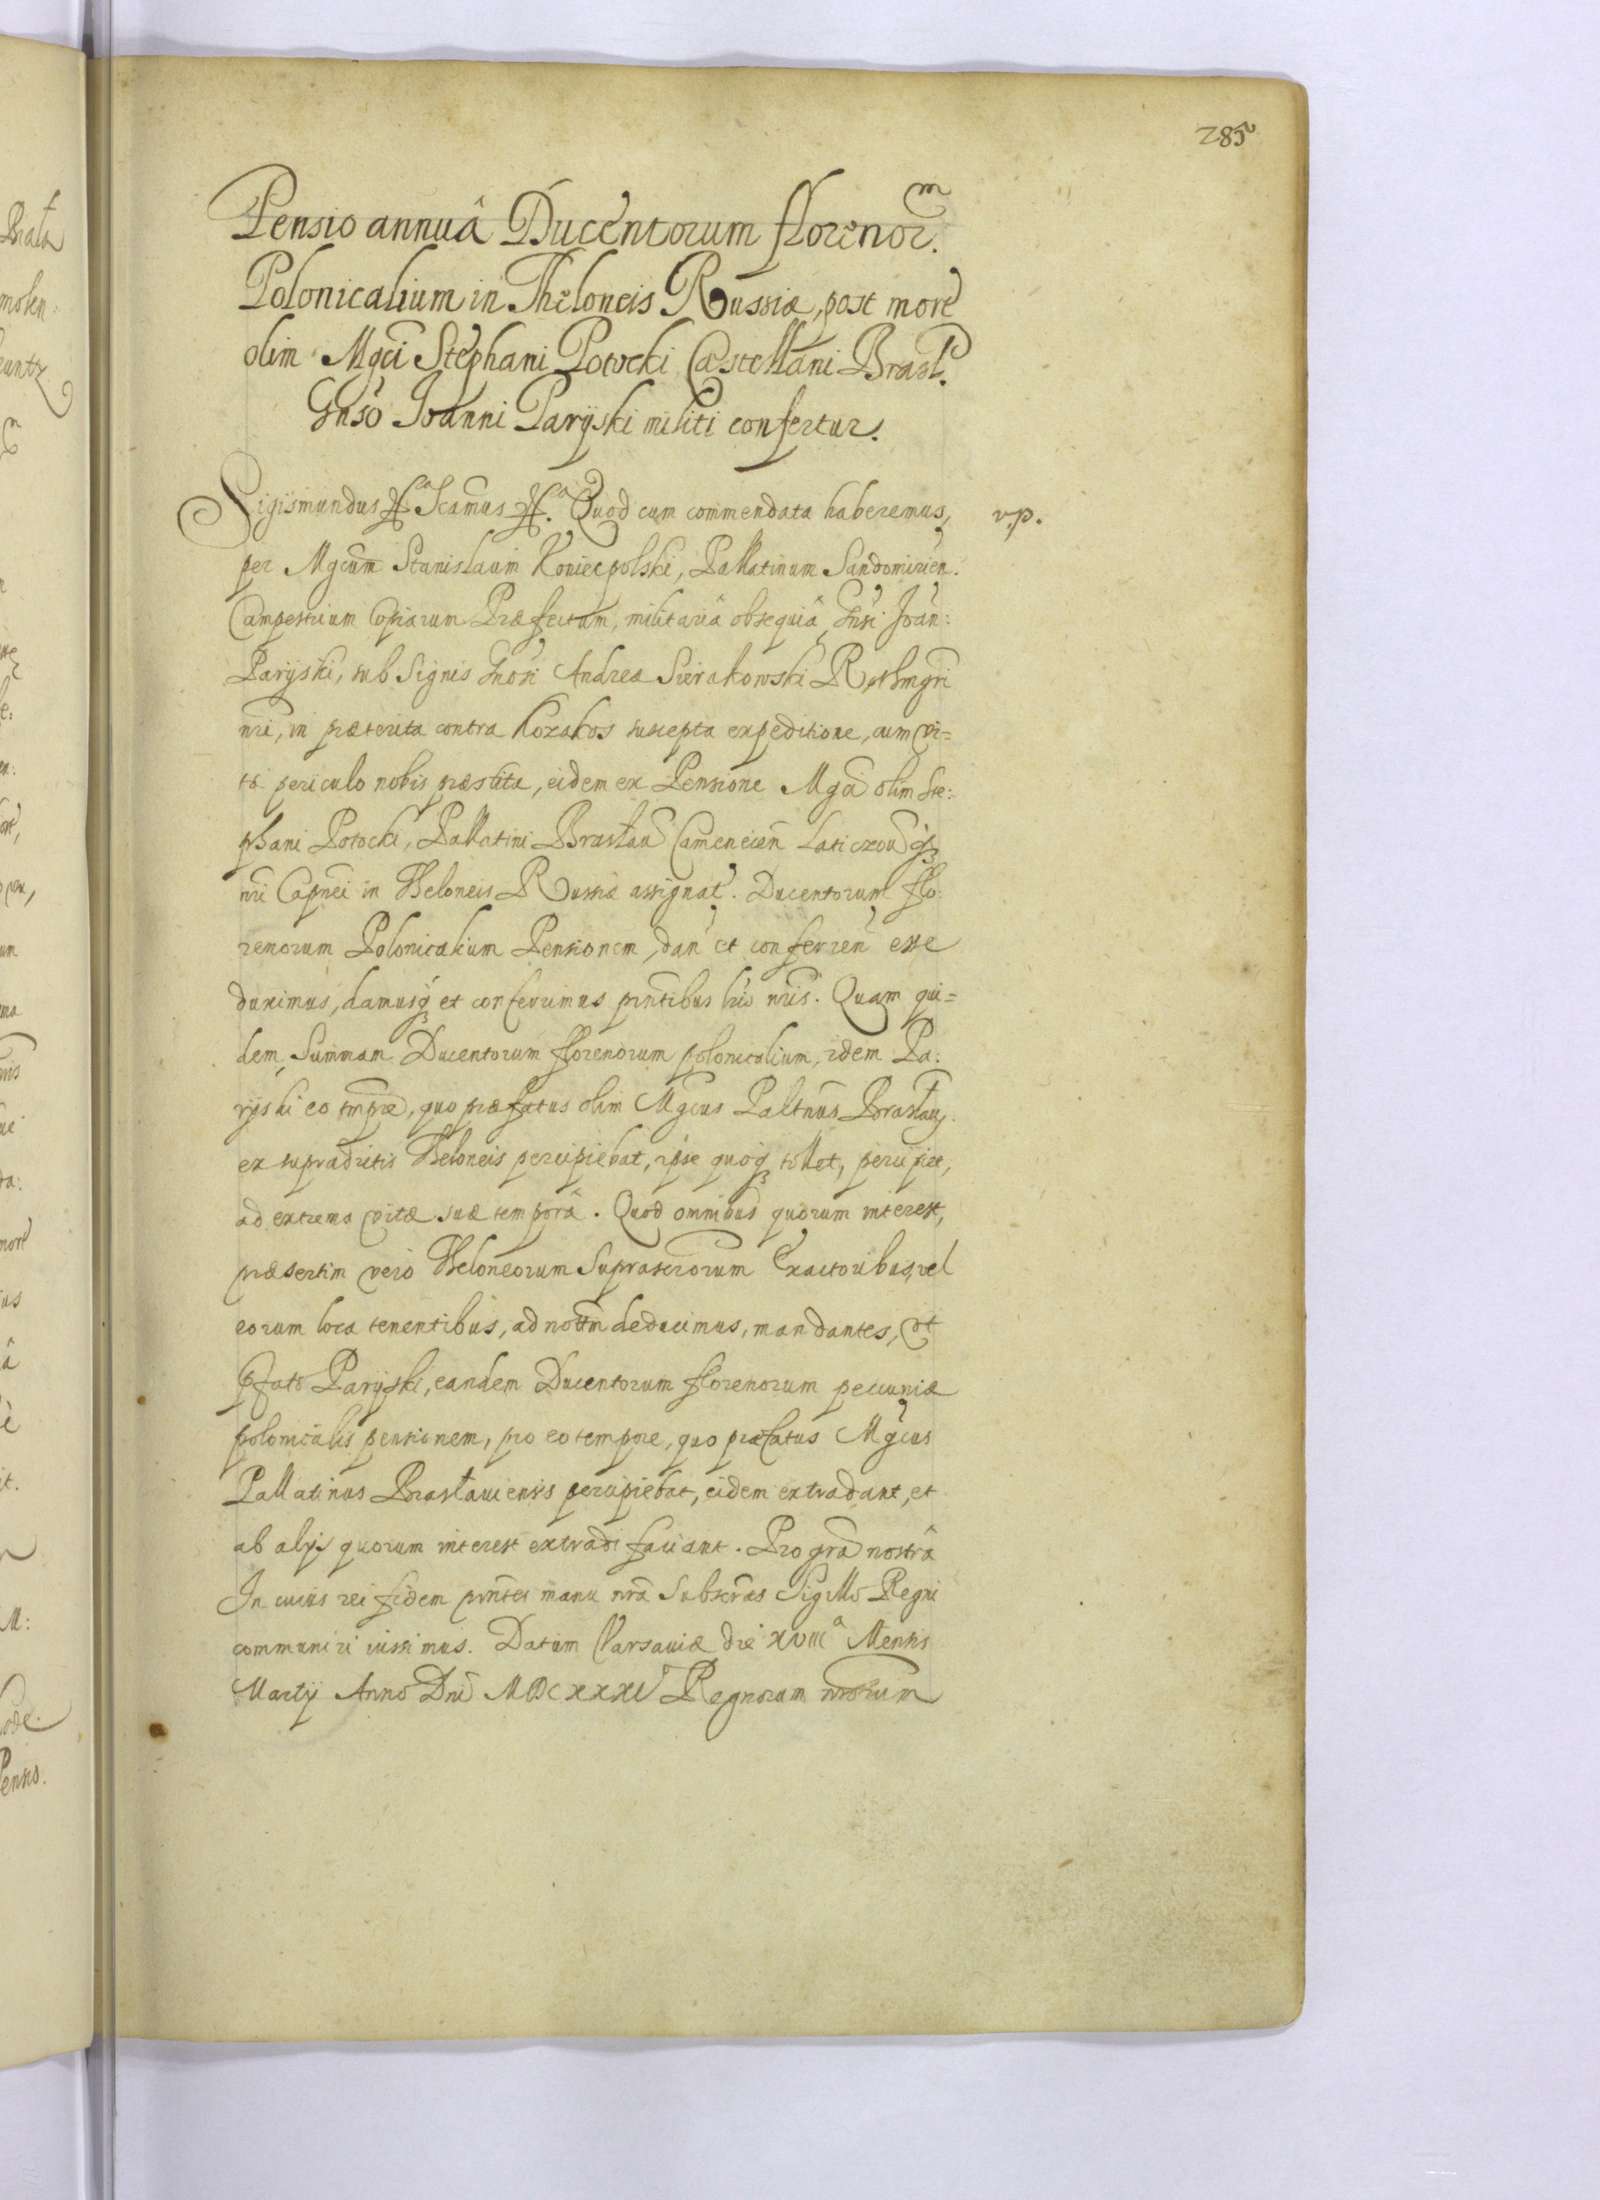 285
Pensio annuâ Ducentorum florenor.m
Polonicalium in Theloneis Russiæ, post morē
olim Mgci Stephani Potocki Castellani Brasl.
Gnso Joanni Paryski militi confertur.
Sigismundus &ca Scamus &ca. Quod cum commendata haberemus, v.p.
per Mgcum Stanislaum Koniecpolski, Pallatinum Sandomirien.
Campestrium Copiarum Præfectum, militariâ obsequiâ, Gnsi Joan:
Paryski, sub Signis Gnosi Andreæ Sierakowski Rothmgri
nri, in præterita contra Kozakos suscepta expeditione, cum vi=
tæ periculo nobis præstita, eidem ex Pensione Mgci olim Ste:
phani Potocki, Pallatini Braslau Camenecien Laticzou q3
nri Capnei in Theloneis Russiæ assignat. Ducentorum flo:
renorum Polonicalium Pensionem, dan et conferren esse
duximus, damusq3 et conferimus pntibus lris nris. Quam qui=
dem, Summam Ducentorum florenorum polonicalium, idem Pa:
ryski eo tmpre, quo præfatus olim Mgcus Paltnus Braslau.
ex supradictis Theloneis percipiebat, ipse quoq3 tollet, percipiet,
ad extrema vitæ suæ temporâ. Quod omnibus quorum interest,
præsertim vero Theloneorum Suprascrorum Exactoribus, vel
eorum loca tenentibus, ad nottm deducimus, mandantes, vt
pfato Paryski, eandem Ducentorum florenorum pecuniæ
polonicalis pensionem, pro eo tempore, quo præfatus Mgcus
Pallatinus Braslauiensis percipiebat, eidem extradant, et
ab alijs quorum interest extradi faciant. Pro grâ nostrâ
In cuius rei fidem pntes manu nrâ Subscras Sigillo Regni
communiri iussimus. Datum Varsauiæ die XVIIIa Mensis
Martij Anno Dni MDCXXXI Regnorum nrorum